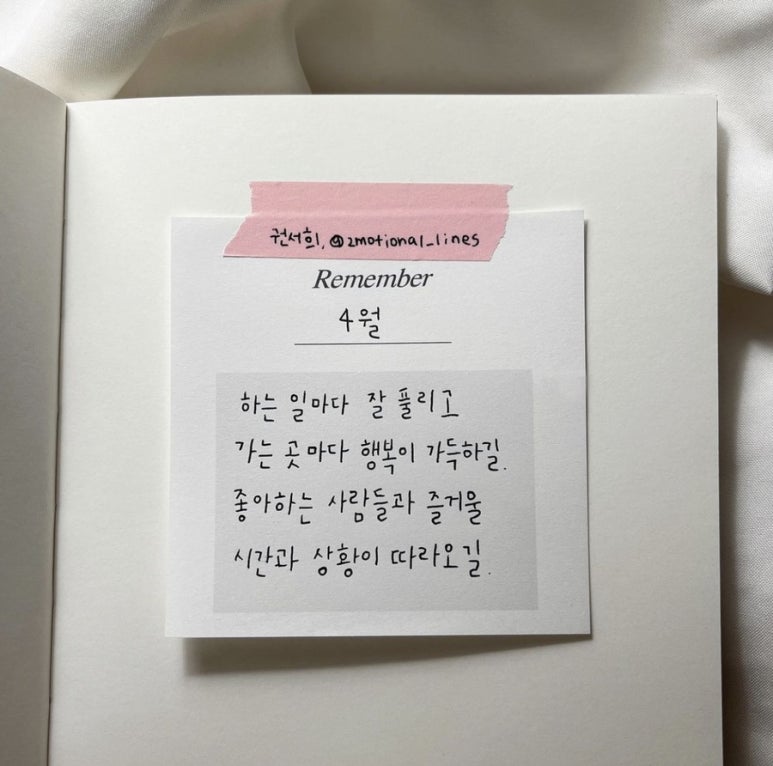 권서희, @2motional_lines
Remember
4월
하는 일마다 잘 풀리고
가는 곳마다 행복이 가득하길.
좋아하는 사람들과 즐거울
시간과 상황이 따라오길.